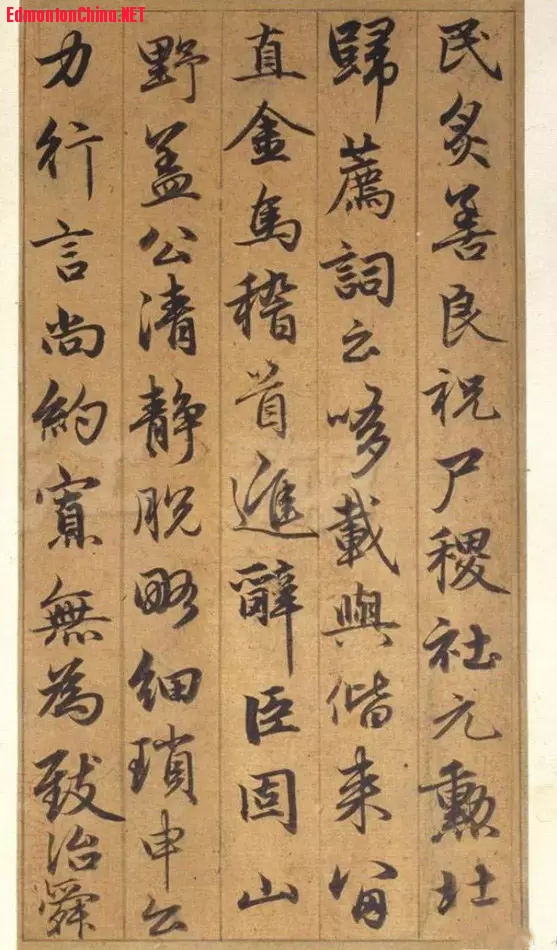 EdmontonChina.NET
民炙善良祝尸稷社元勲壮
歸薦詞云載與偕来
直金馬稽首進辭臣固山
野盖公清静脱略細瑣申公
力行言尚約寡無為致治舜